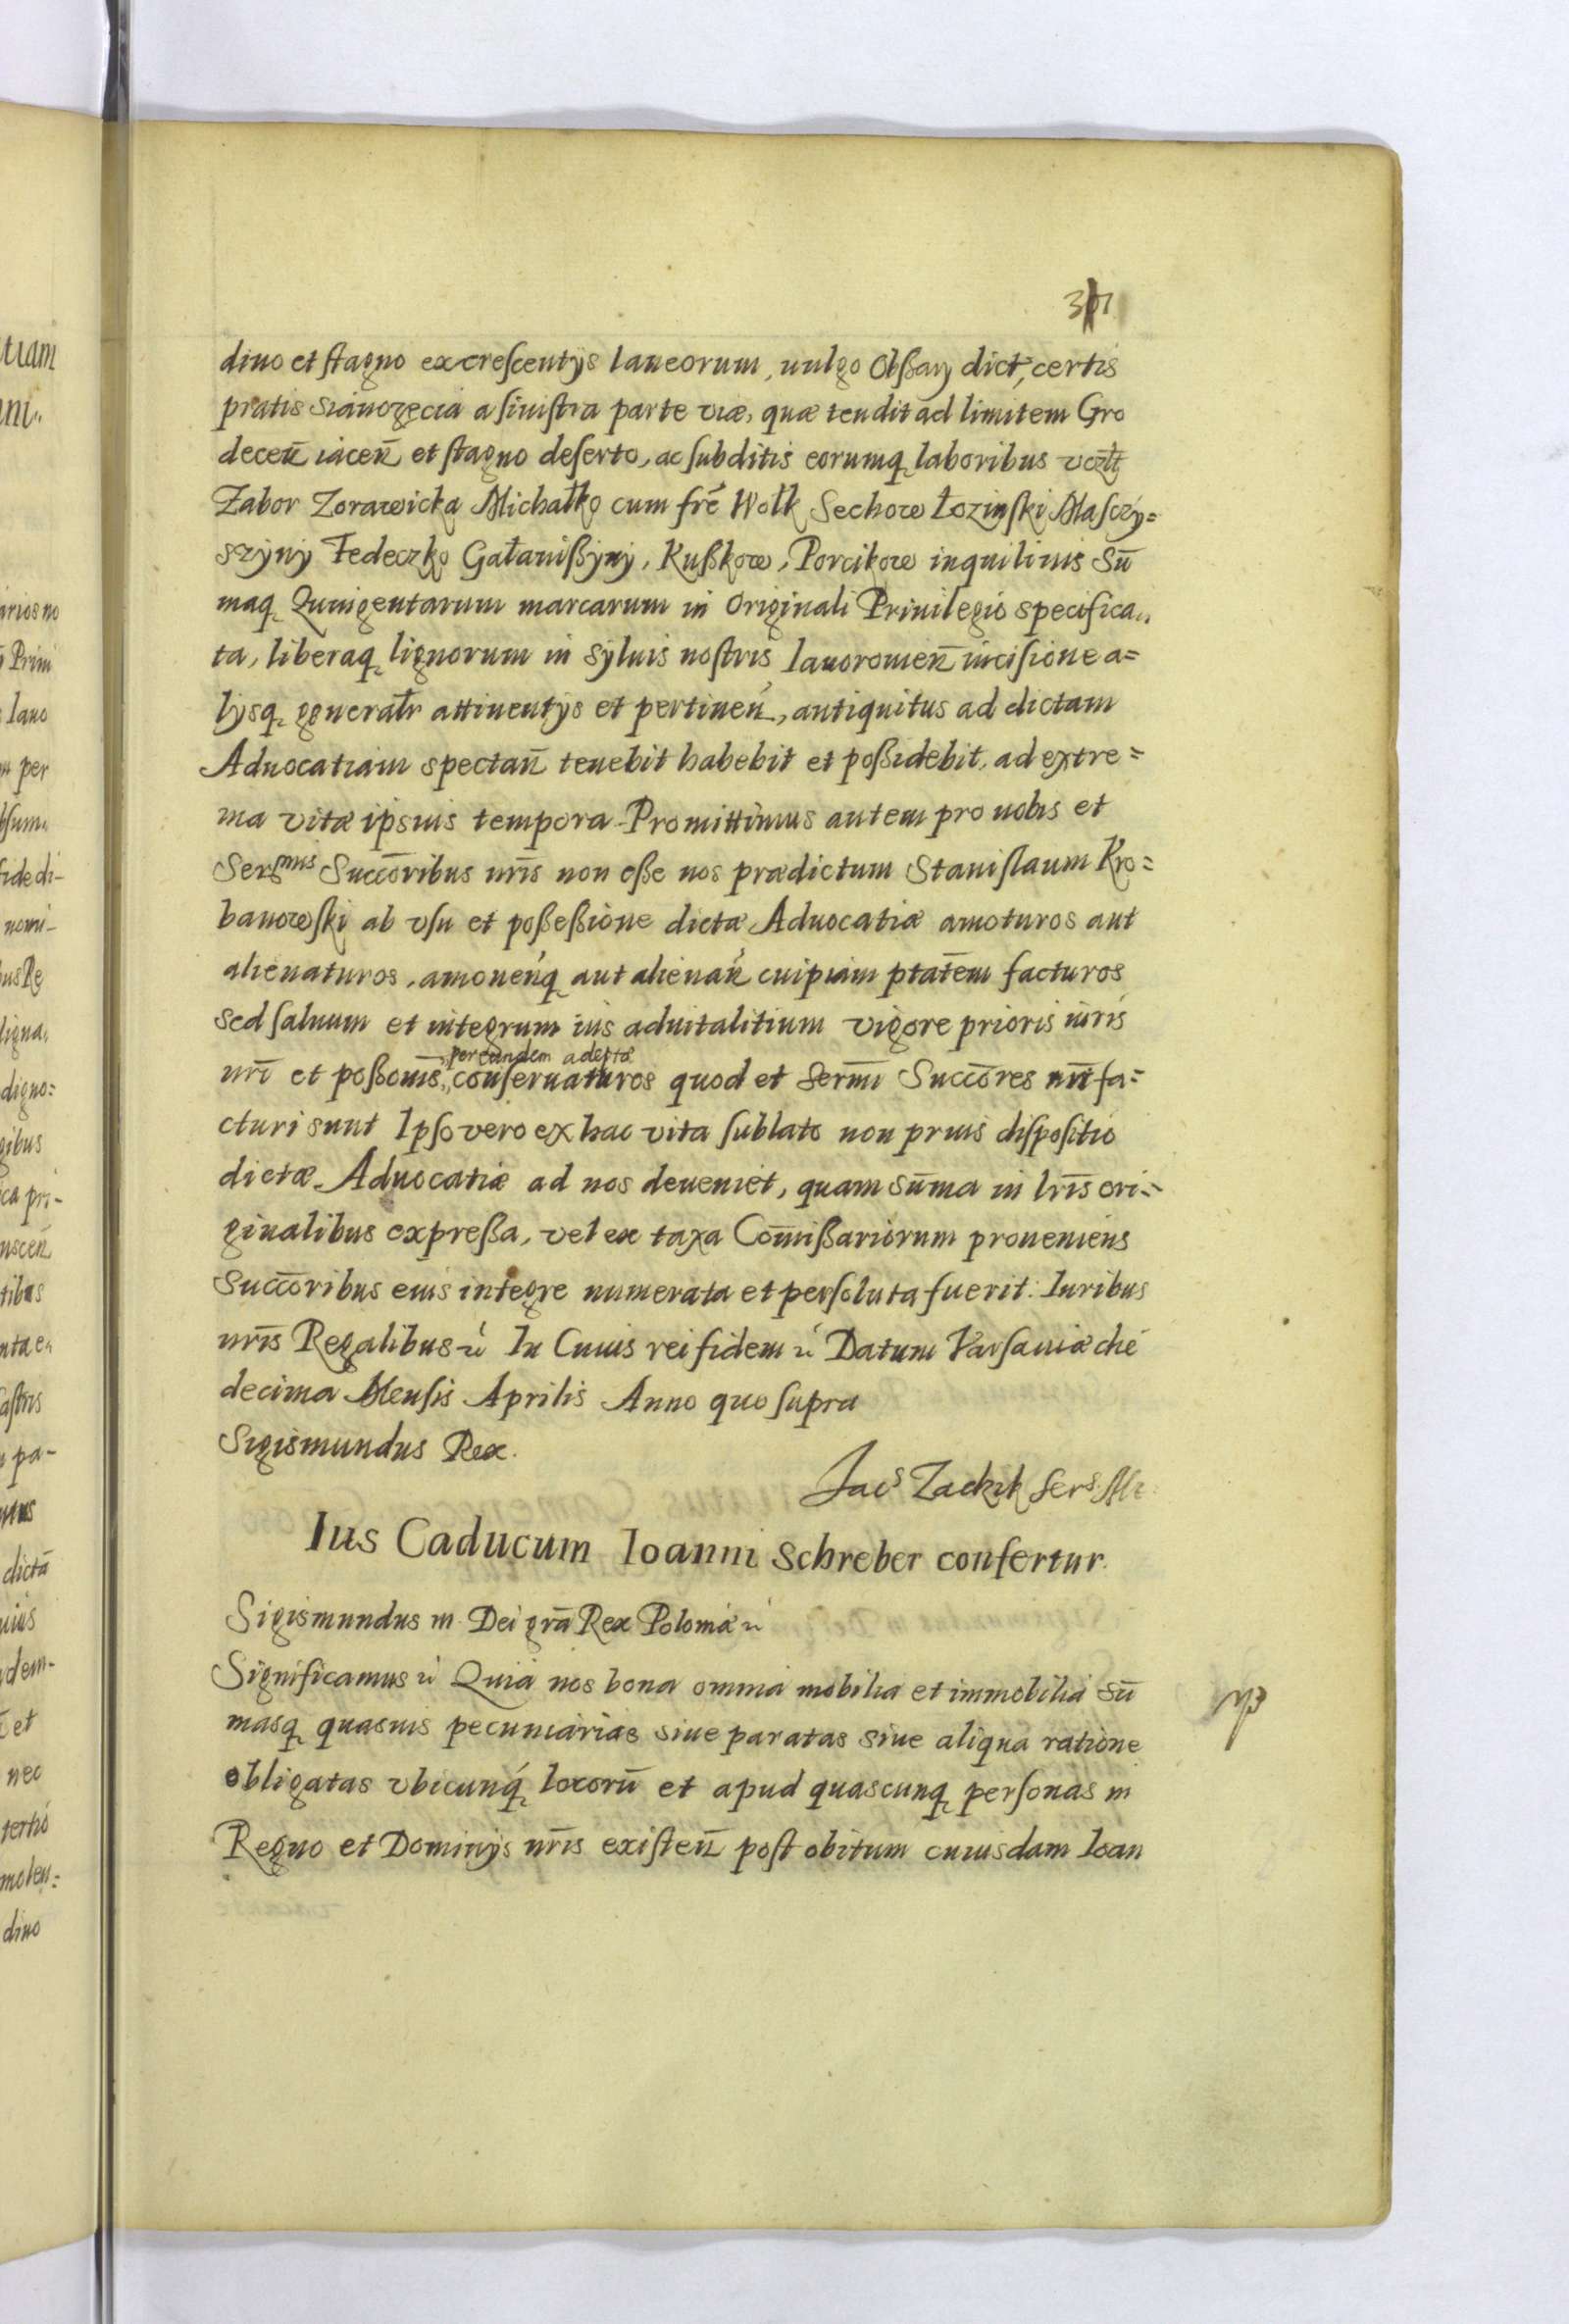 301
diuo et stagno excrescentijs laneorum, uulgo Obßary dict, certis
pratis Sianozęcia a sinistra parte viæ, quæ tendit ad limitem Gro
deceñ iaceñ et stagno deserto, ac subditis eorumq laboribus
Zabor Zorawicka Michałko cum frē Wołk Sechow Łozinski Masczy=
szyny Fedeczko Gałanißyny, Kußkow, Porcikow inquilinis Sū
maq Quingentarum marcarum in Originali Priuilegio specifica,,
ta, liberaq lignorum in syluis nostris Iauoromeñ incisione a=
lysq gnŕalr attinentijs et pertineñ, antiquitus ad dictam
Aduocatiam spectañ tenebit habebit et poßidebit, ad extre=
ma vitæ ipsius tempora Promittimus autem pro nobis et
Sermis Succōribus nris non eße nos prædictum Stanislaum Kro=
banowski ab vsu et poßeßione dictæ Aduocatiæ amoturos aut
alienaturos, amouenq aut alienañ cuipiam ptatem facturos
sed saluum et integrum ius aduitalitium vigore prioris iuris
per eundem adeptæ
nri et poßonis, conseruaturos quod et Sermi Succōres nri fa=
cturi sunt Ipso vero ex hac vita sublato non prius dispositio
dictæ Aduocatiæ ad nos deueniet, quam sūma in lris ori=
ginalibus expreßa, vel ex taxa Comißariorum proueniens
Succōribus eius integre numerata et persoluta fuerit. Iuribus
nris Regalibus &c In Cuius rei fidem &c Datum Varsauiæ die
decima Mensis Aprilis Anno quo supra
Sigismundus Rex.
Jacs Zackik Sers
Ius Caducum Ioanni Schreber confertur.
Sigismundus III Dei grā Rex Poloniæ &c
Significamus &c Quia nos bona omnia mobilia et immobilia Sū
masq quasuis pecuniarias siue paratas siue aliqua ratione
obligatas vbicunq locorū et apud quascunq personas in
Regno et Dominijs nris existeñ post obitum cuiusdam Ioan